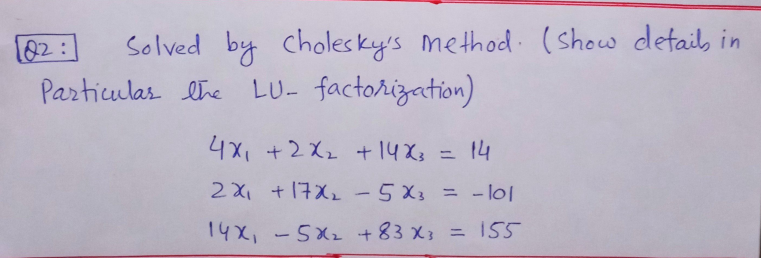 Q2: Solved by Cholesky's Method. (Show details in
Particular the LU- factorization)
4x₁ + 2x₂ + 14x₃ = 14
2x₁ + 17x₂ - 5x₃ = -101
14x₁ - 5x₂ + 83x₃ = 155